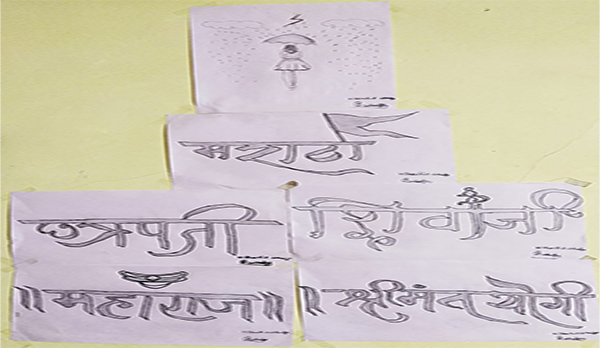 मराठा
छत्रपती
शिवाजी
॥महाराज॥
॥श्रीमंत योगी